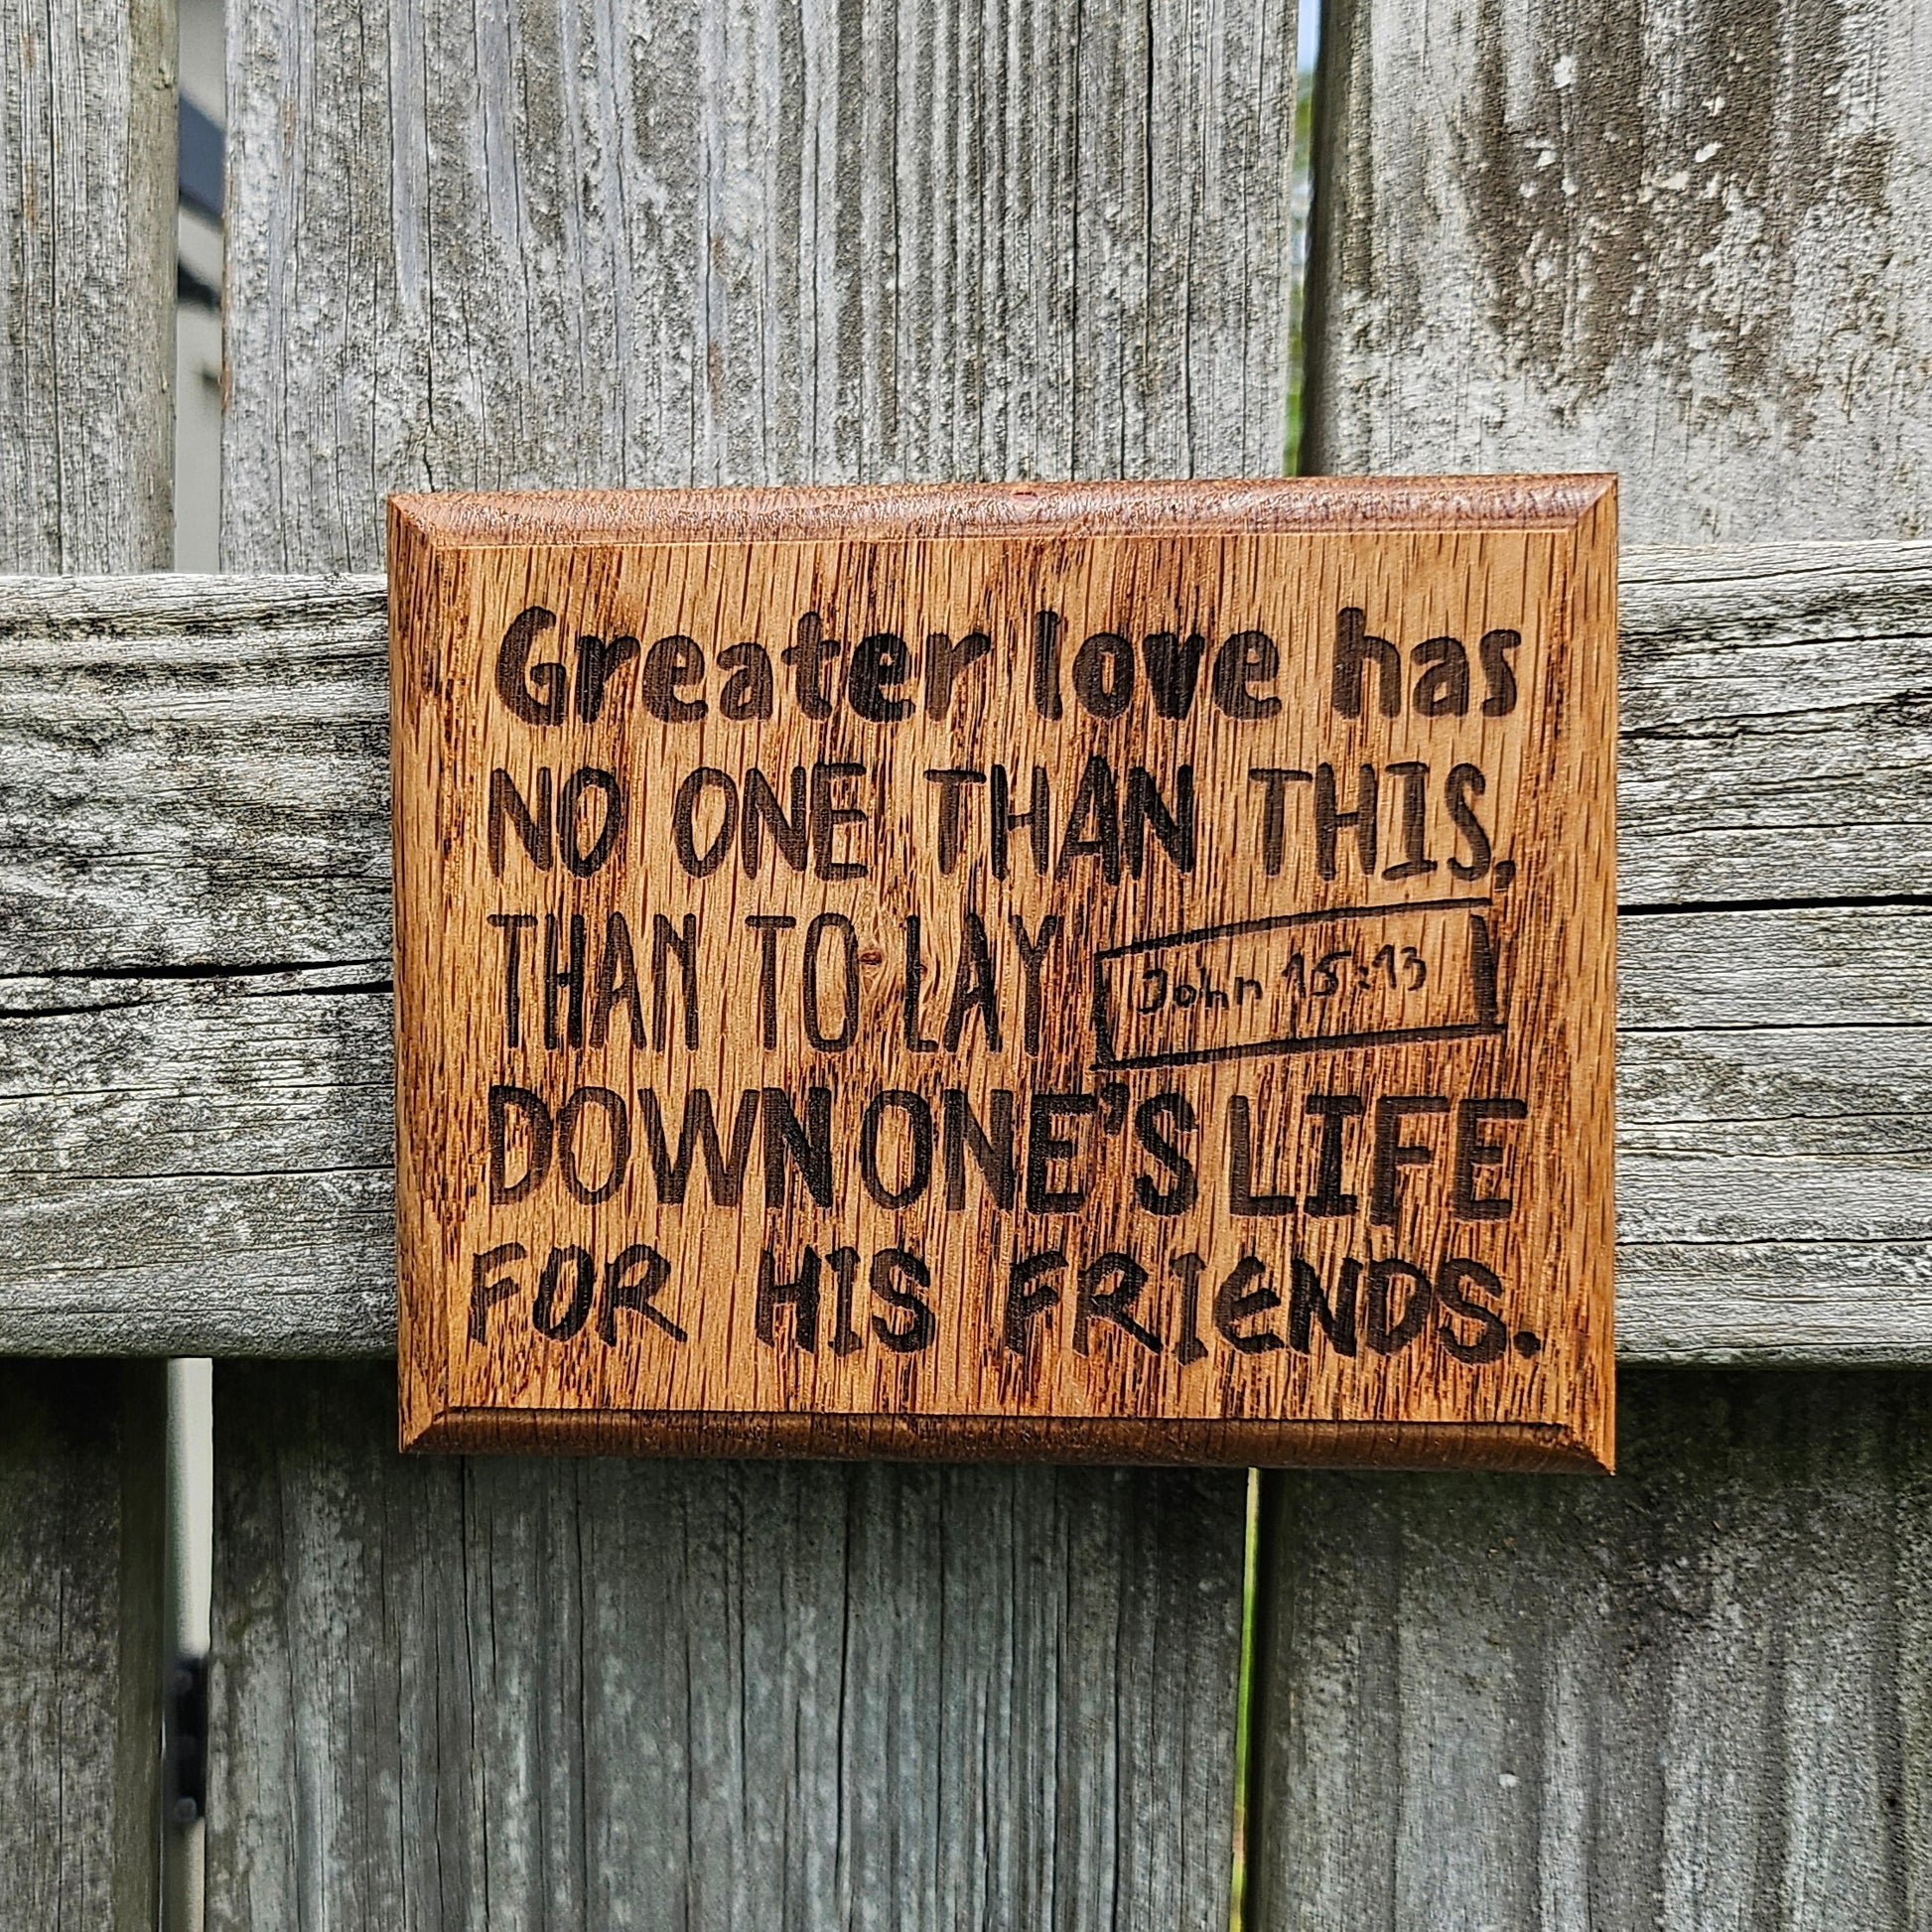 Greater love has
NO ONE THAN THIS,
THAN TO LAY
John 15:13
DOWN ONE'S LIFE
FOR HIS FRIENDS.